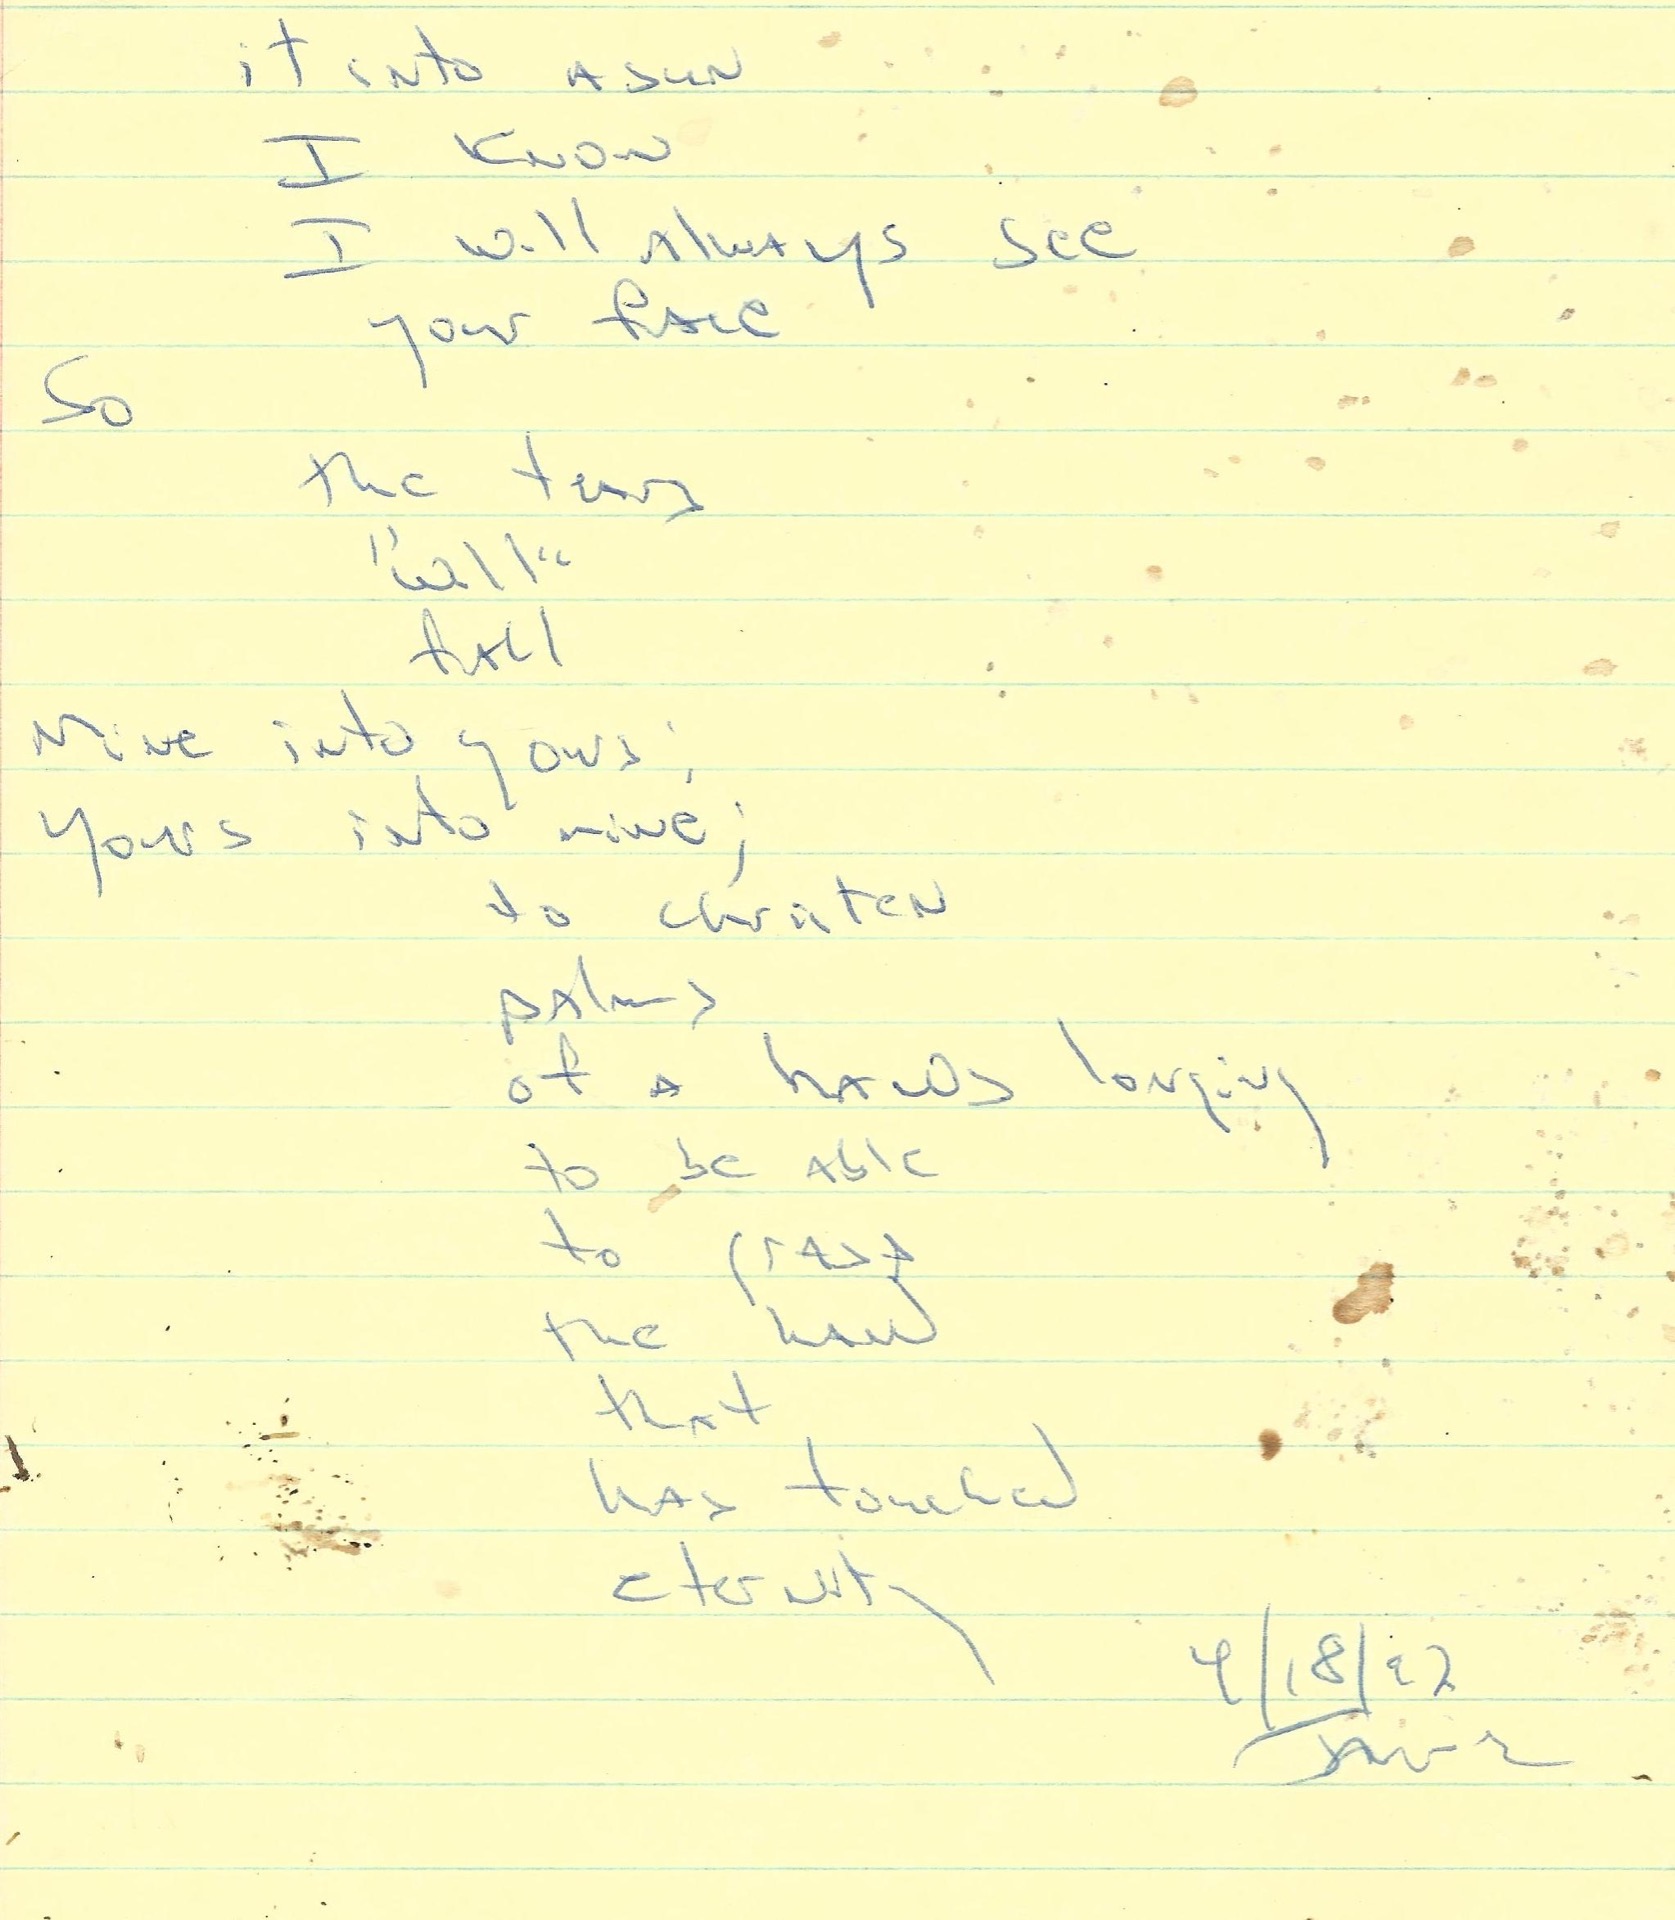 it into a sun
I know
I will always see
your face
So
the tears
"will"
fall
Mine into yours;
yours into mine;
to christen
palms
of a hands longing
to be able
to grasp
the hand
that
has touched
eternity
4/18/92